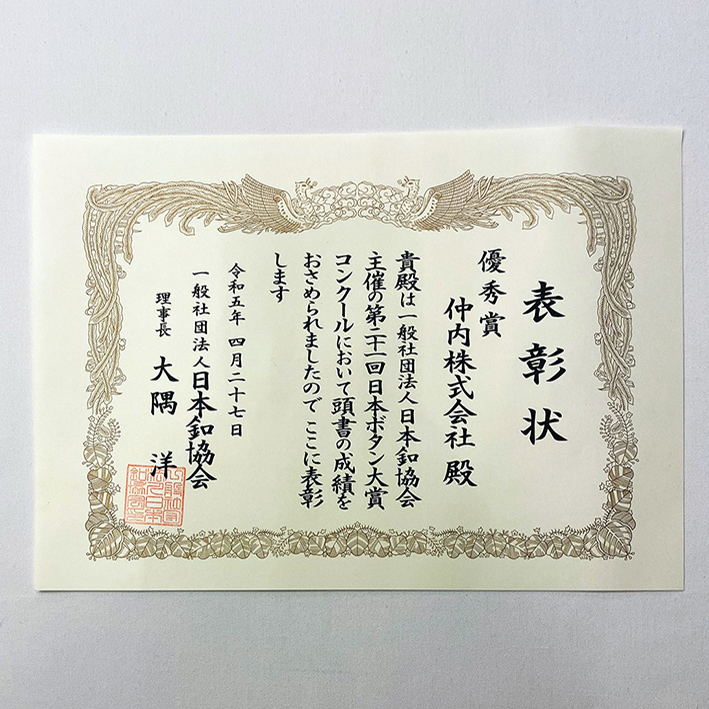 表彰状
優秀賞
仲内株式会社 殿
貴殿は一般社団法人日本釦協会
主催の第二十一回日本ボタン大賞
コンクールにおいて頭書の成績を
おさめられましたので ここに表彰
します
令和五年 四月二十七日
一般社団法人日本釦協会
理事長 大隅 洋